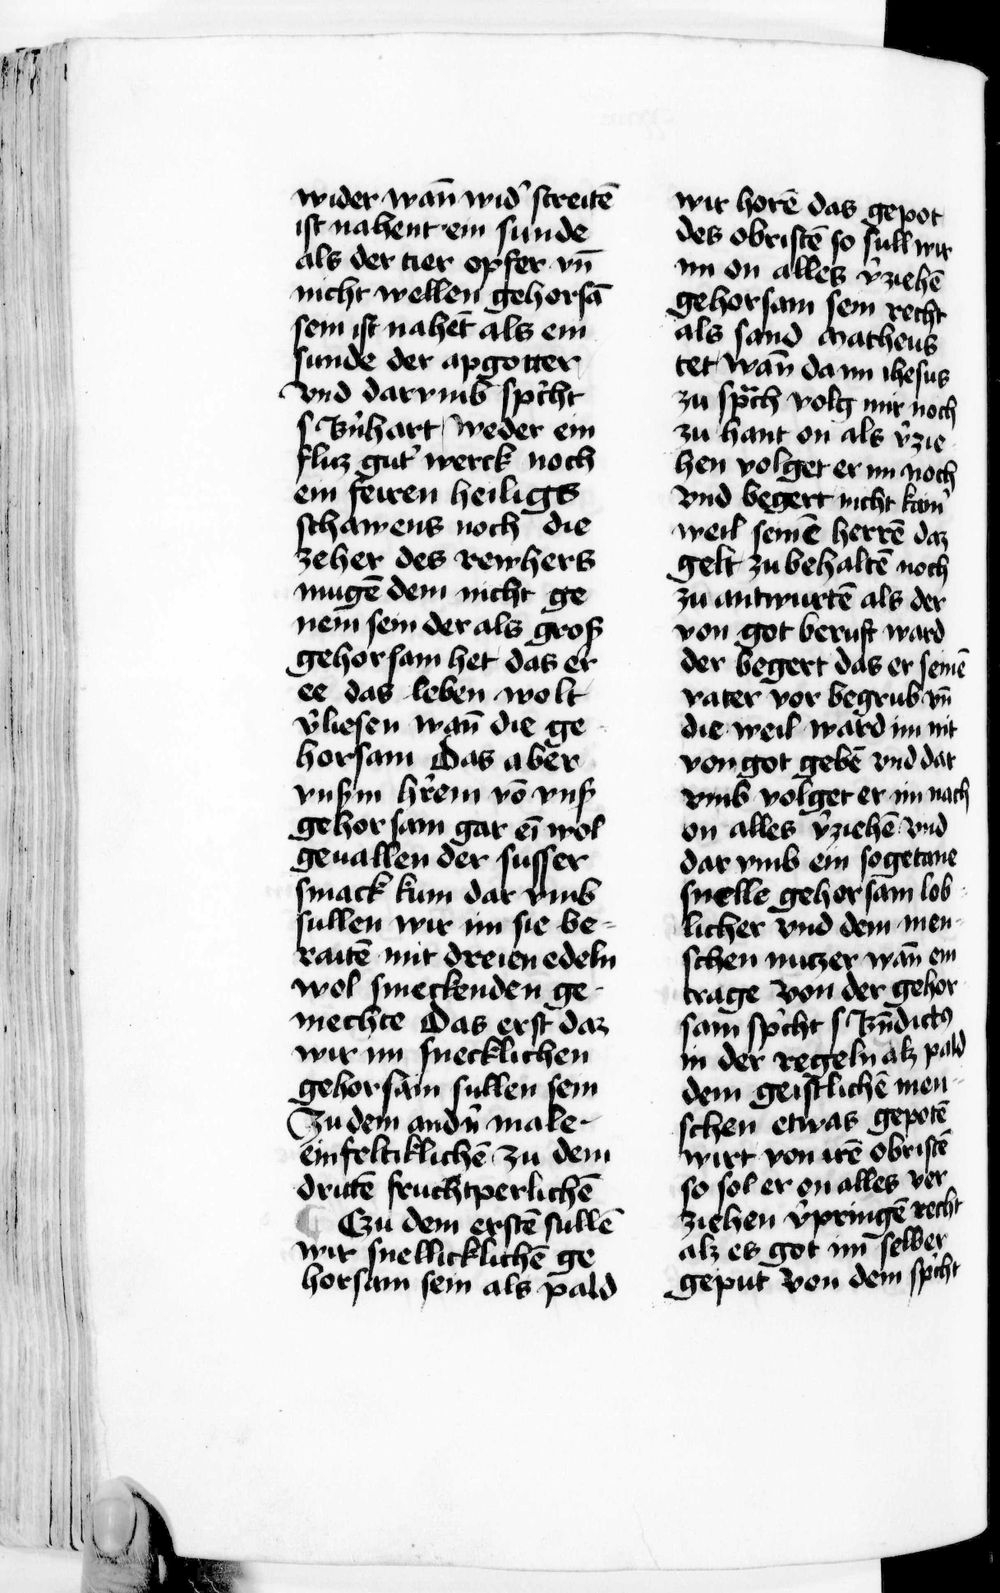 wider wan̄ wid' streitē
ist nahent ein sunde
als der tier opfer vn̄
nicht wellen gehorsā
sein ist nahēt als ein
sunde der apgotter
vnd darvmb sp'cht
s Bn̓hart Weder ein
fluz gut' werck noch
ein feiren heiligs
schawens noch die
zeher des rewhers
mugē dem nicht ge
nem sein der als groß
gehorsam het das er
ee das leben wolt
v'liesen wan̄ die ge
horsam Das aber
vnßm hr̓em vō vnß
gehorsam gar ein̄ wol
geuallen der susser
smack kum dar vmb
sullen wir im sie be-
raitē mit dreien edeln
wol smeckenden ge-
mechte Das erst daz
wir im snecklichen
gehorsam sullen sein
Zu dem andn̓ male
einfeltiklichē zu dem
drittē fruchtperlichē
Czu dem erstē sullē
wir snellicklichē ge
horsam sein als pald
wir horē das gepot
des obristē so sull wir
im on alles v'ziehē
gehorsam sein recht
als sand Matheus
tet wan̄ da im ihesus
zu sprach volg mir noch
zu hant on als v'zie
hen volget er im noch
vnd begert nicht kain'
weil seinē herrē daz
gelt zu behaltē noch
zu antwurtē als der
von got beruft ward
der begert das er seinē
vater vor begrub vn̄
die weil ward im nit
von got gebē vnd dar
vmb volget er im nach
on alles v'ziehē vnd
dar vmb ein sogetane
snelle gehorsam lob
licher vnd dem men-
schen nutzer wan̄ ein
trage Von der gehor
sam sp'cht s Bn̄dictus
in der regeln alz pald
dem geistlichē men-
schen etwas gepotē
wirt von irē obristē
so sol er on alles ver
ziehen v'pringē recht
alz es got im selber
geput Von dem sp'cht